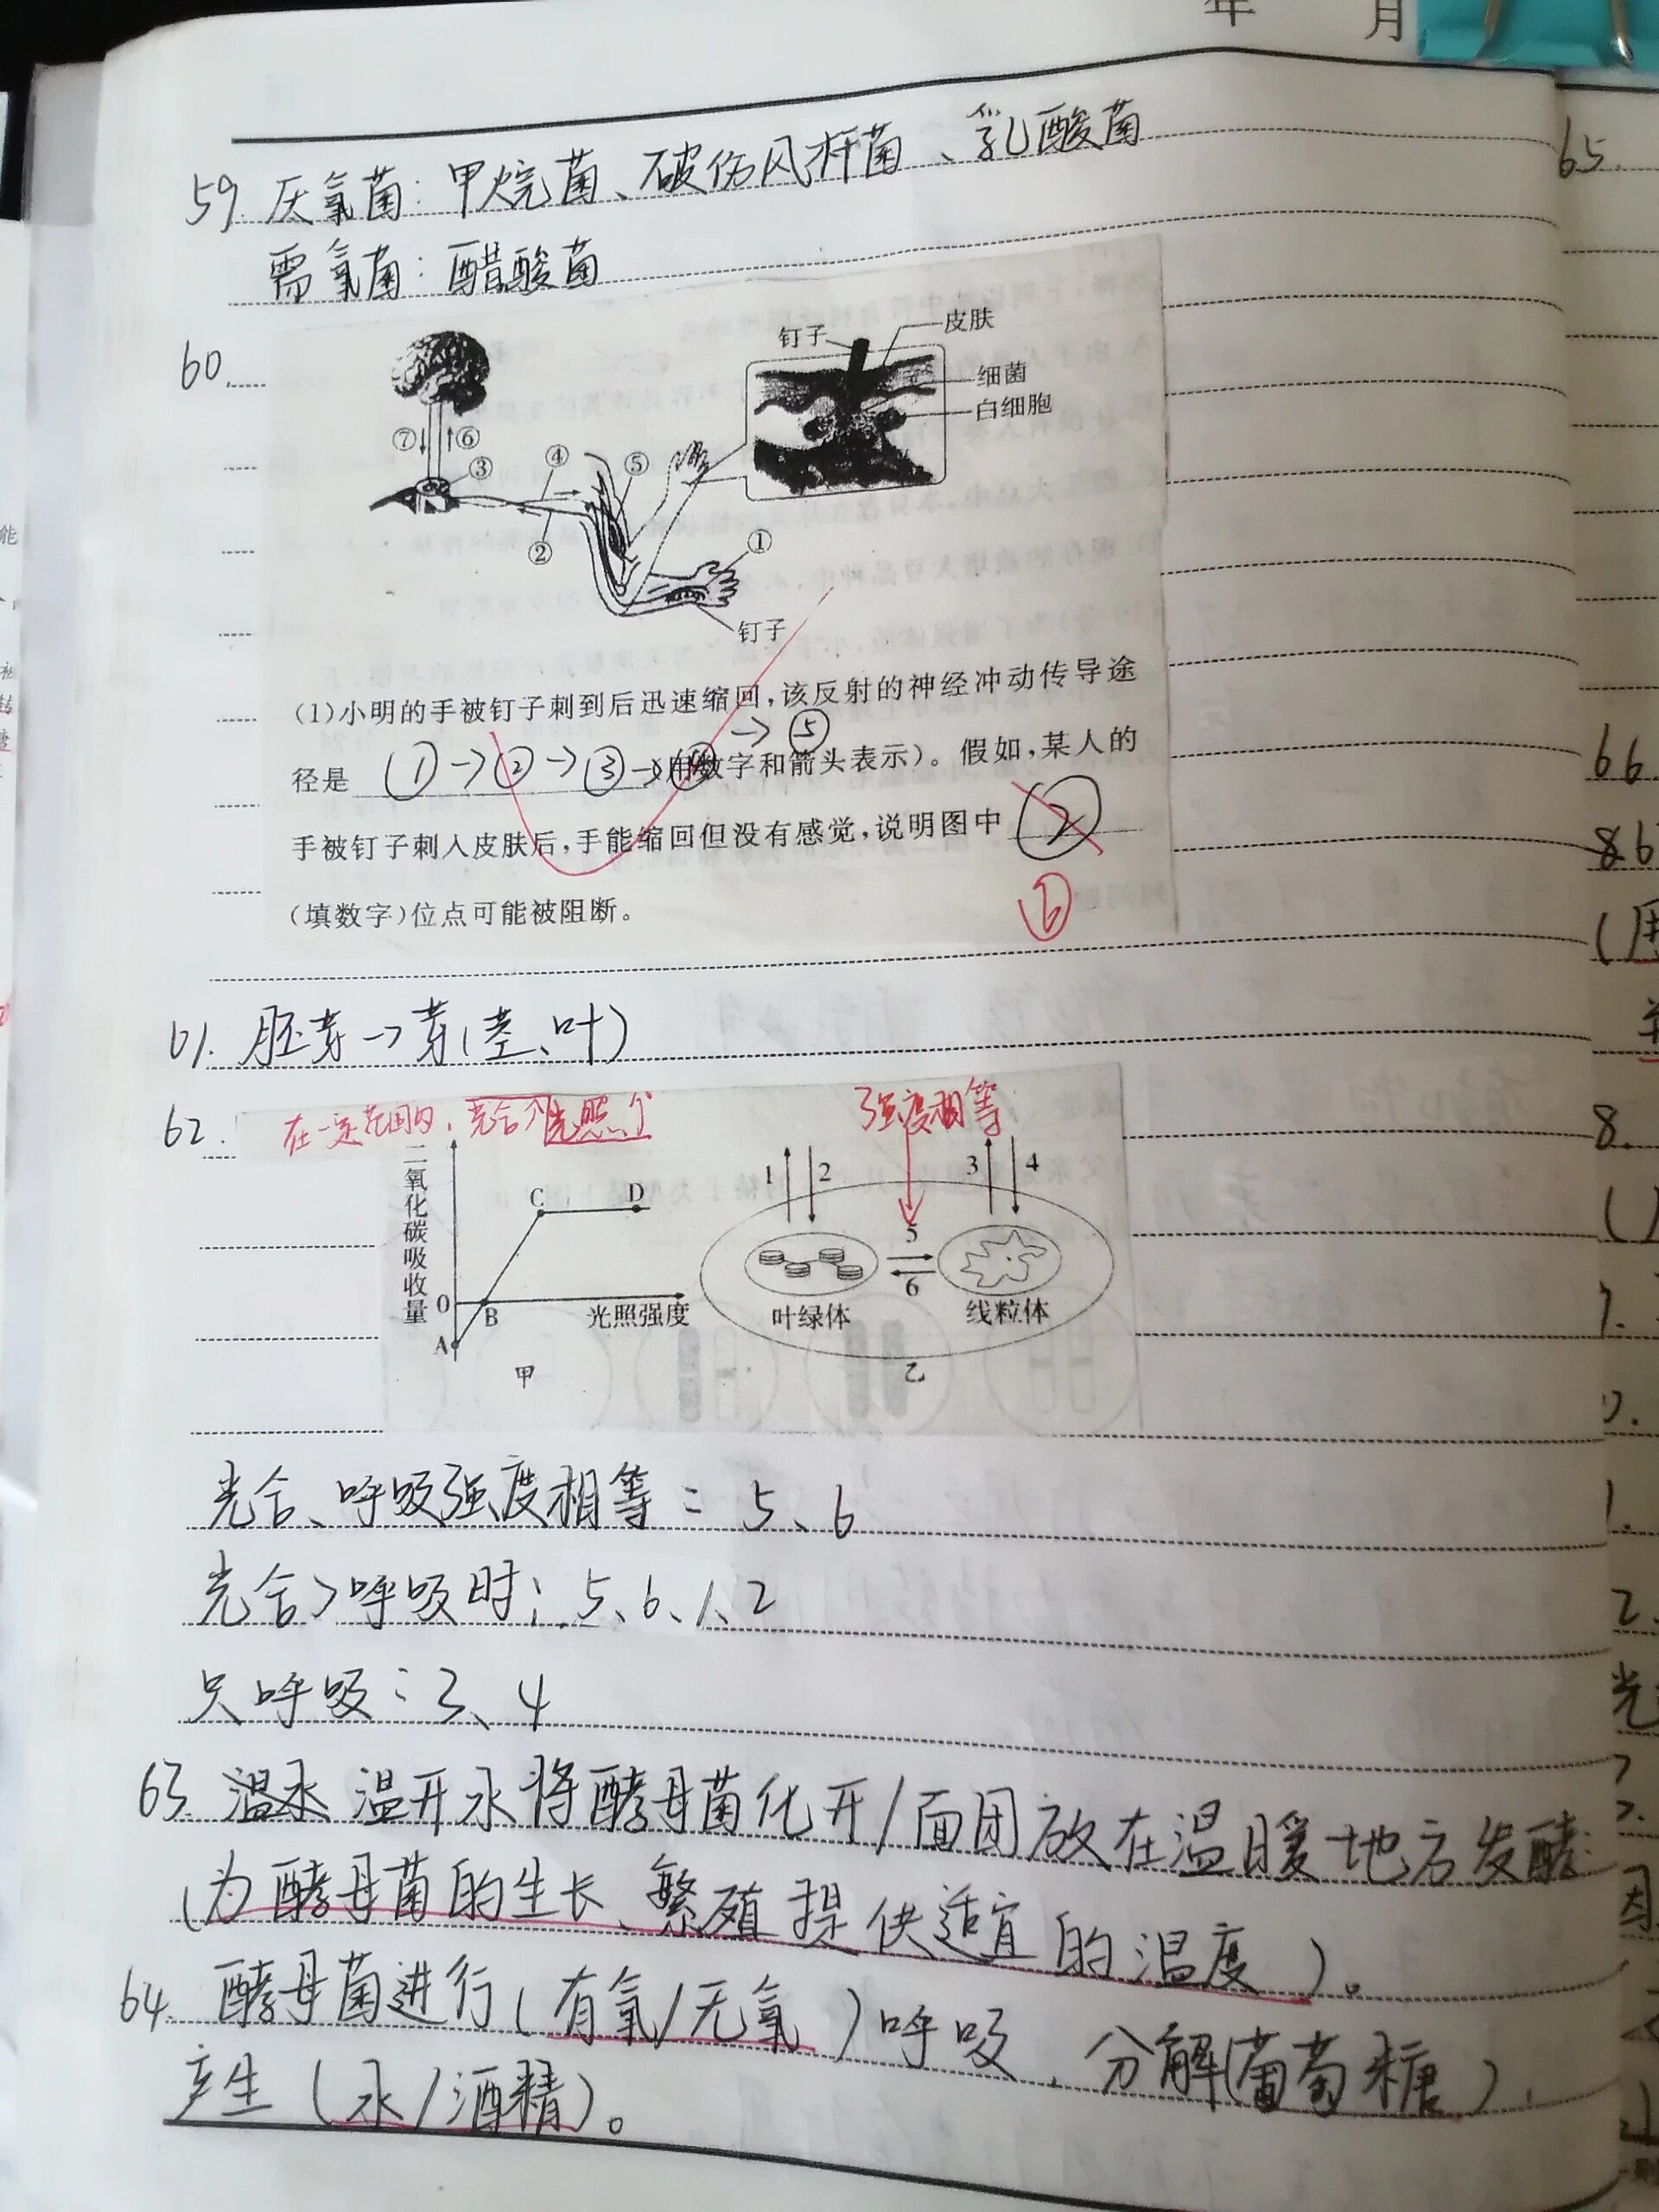 年 月
59. 厌氧菌：甲烷菌、破伤风杆菌、乳酸菌
需氧菌：醋酸菌
60.
钉子
皮肤
细菌
白细胞
⑦ ⑥
③
④
⑤
②
①
钉子
(1)小明的手被钉子刺到后迅速缩回,该反射的神经冲动传导途
径是 ①→②→③→④→⑤ 用数字和箭头表示)。假如,某人的
手被钉子刺入皮肤后,手能缩回但没有感觉,说明图中 ②
⑥
(填数字)位点可能被阻断。
61. 胚芽→芽(茎、叶)
62.
在一定范围内,光合个光照个
强度相等
二氧化碳吸收量
C D
0 B
A
光照强度
甲
1 2 3 4
5
6
叶绿体 线粒体
乙
光合、呼吸强度相等：5、6
光合>呼吸时：5、6、1、2
只呼吸：3、4
63. 温水 温开水将酵母菌化开/面团放在温暖地方发酵
(为酵母菌的生长、繁殖提供适宜的温度)。
64. 酵母菌进行(有氧/无氧)呼吸,分解(葡萄糖),
产生(水/酒精)。
65.
66
8.